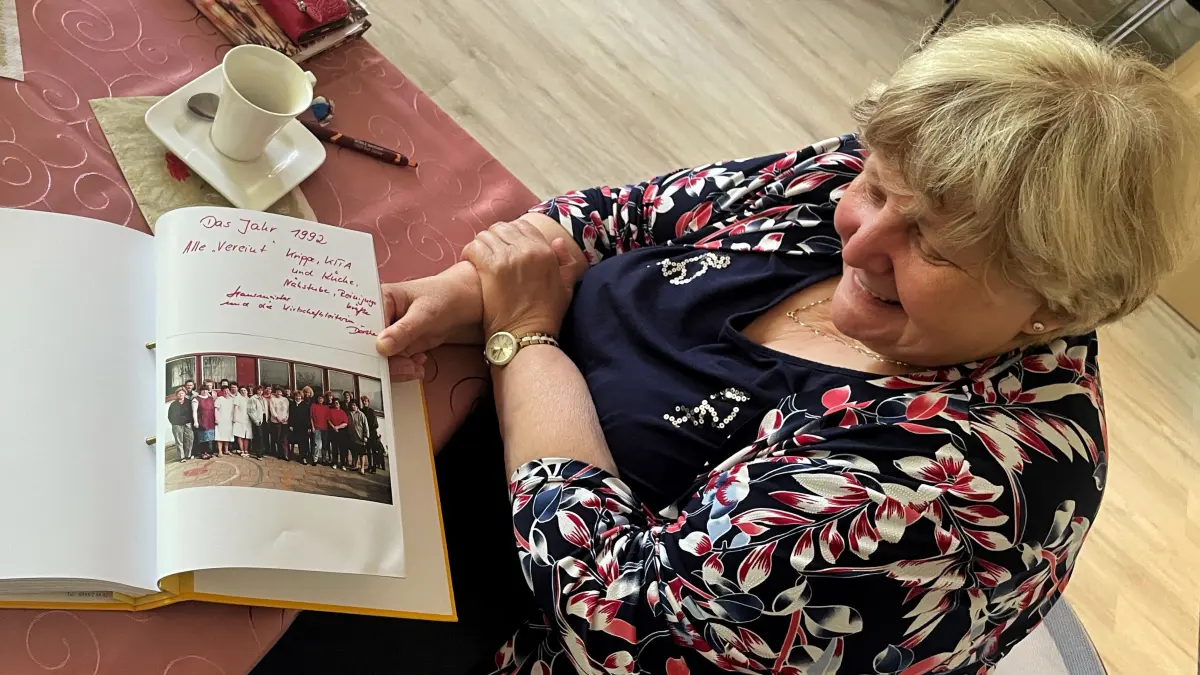 Das Jahr 1992
Alle „Vereint" Krippe, KITA
und Küche.
Nähstube, Reinigungs
kräfte
Hausmeister
und die Wirtschaftsleiterin